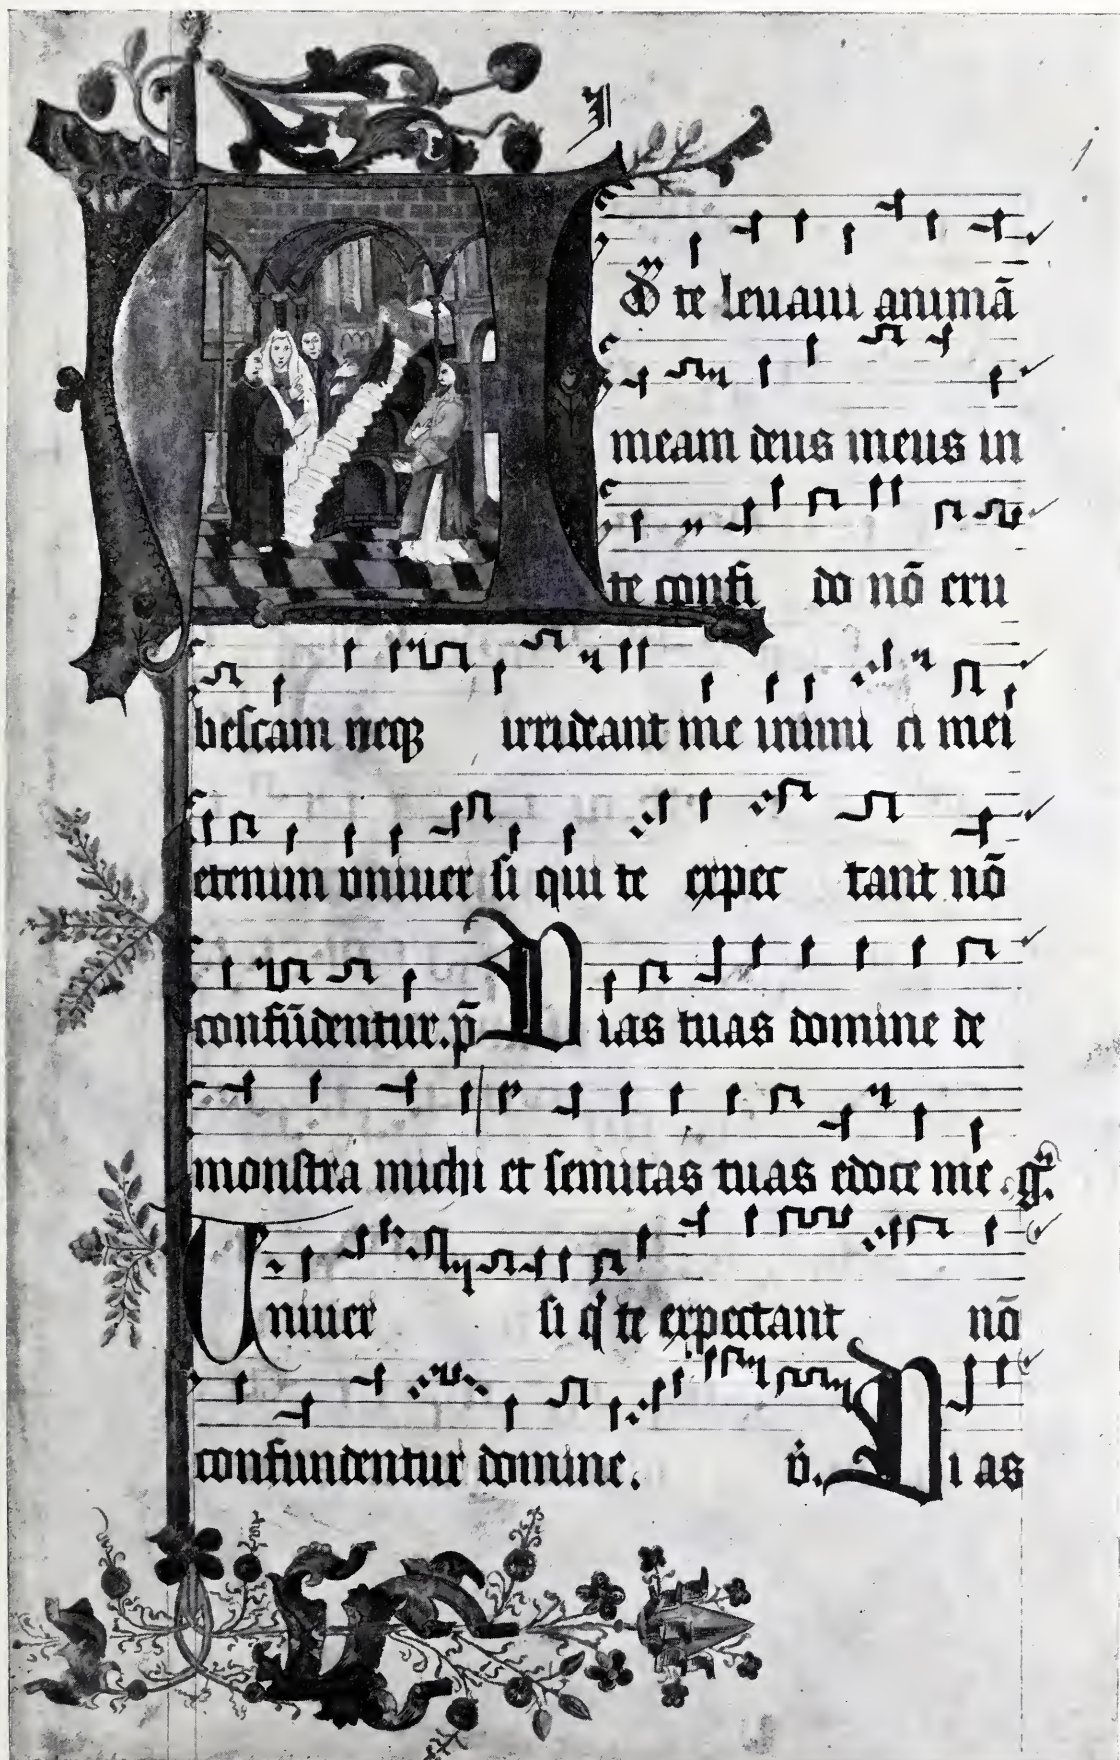 D te leuaui animā
meam deus meus in
te confi do nō eru
bescam neqꝫ irrideant me inimi ci mei
etenim vniuer si qui te expec tant nō
confūdentur. p̄ Vias tuas domine de
monstra michi et semitas tuas edoce me.
Uniuer si q te expectant nō
confundentur domine. v̇. Vias